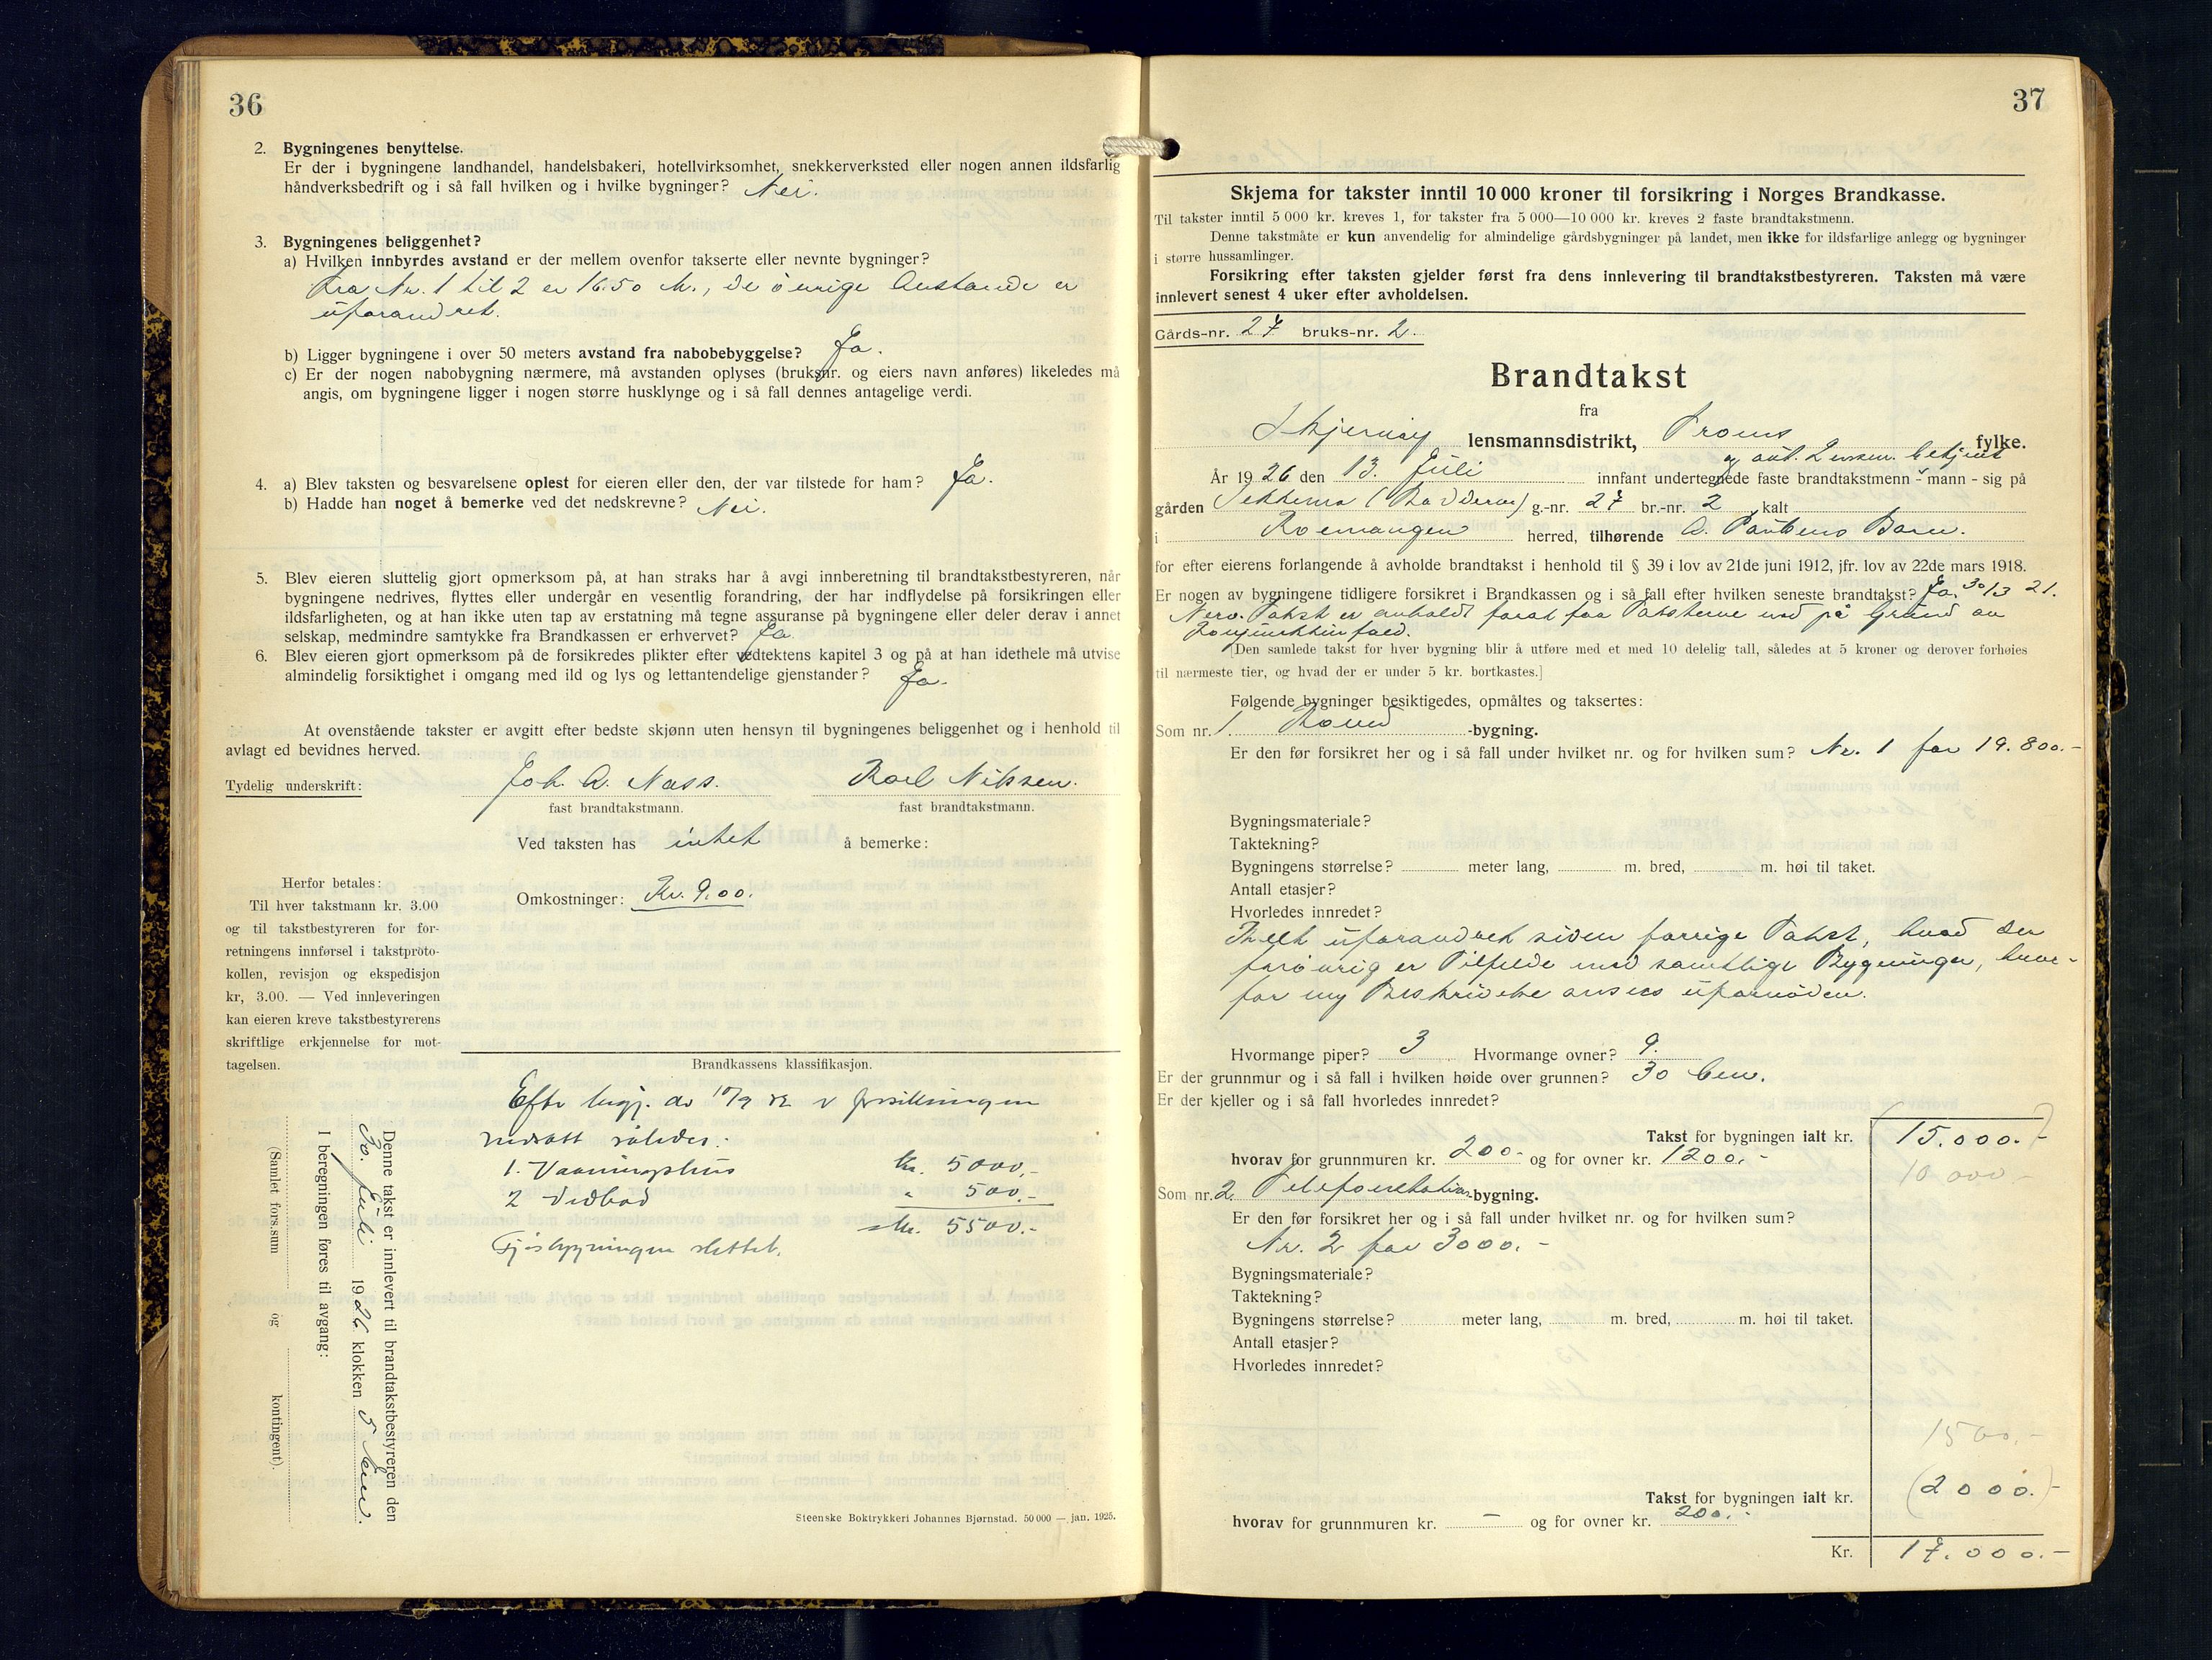 36
2. Bygningenes benyttelse.
Er der i bygningene landhandel, handelsbakeri, hotellvirksomhet, snekkerverksted eller nogen annen ildsfarlig
håndverksbedrift og i så fall hvilken og i hvilke bygninger? Nei.
3. Bygningenes beliggenhet?
a) Hvilken innbyrdes avstand er der mellem ovenfor takserte eller nevnte bygninger?
Fra Nr. 1 til 2 er 16.50 M., de øvrige Avstande er
uforandret.
b) Ligger bygningene i over 50 meters avstand fra nabobebyggelse? Ja.
c) Er der nogen nabobygning nærmere, må avstanden oplyses (bruksnr. og eiers navn anføres) likeledes må
angis, om bygningene ligger i nogen større husklynge og i så fall dennes antagelige verdi.
4. a) Blev taksten og besvarelsene oplest for eieren eller den, der var tilstede for ham? Ja.
b) Hadde han noget å bemerke ved det nedskrevne? Nei.
5. Blev eieren sluttelig gjort opmerksom på, at han straks har å avgi innberetning til brandtakstbestyreren, når
bygningene nedrives, flyttes eller undergår en vesentlig forandring, der har indflydelse på forsikringen eller
ildsfarligheten, og at han ikke uten tap av erstatning må tegne assuranse på bygningene eller deler derav i annet
selskap, medmindre samtykke fra Brandkassen er erhvervet? Ja
6. Blev eieren gjort opmerksom på de forsikredes plikter efter vedtektens kapitel 3 og på at han idethele må utvise
almindelig forsiktighet i omgang med ild og lys og lettantendelige gjenstander? Ja.
At ovenstående takster er avgitt efter bedste skjønn uten hensyn til bygningenes beliggenhet og i henhold til
avlagt ed bevidnes herved.
Tydelig underskrift: Joh. A. Næss. Karl Nilssen.
fast brandtakstmann. fast brandtakstmann.
Ved taksten has intet å bemerke:
Omkostninger: Kr. 9.00.
Herfor betales:
Til hver takstmann kr. 3.00
og til takstbestyreren for for-
retningens innførsel i takstproto-
kollen, revisjon og ekspedisjon
kr, 3.00. — Ved innleveringen
kan eieren kreve takstbestyrerens
skriftlige erkjennelse for mot-
tagelsen.
Brandkassens klassifikasjon.
Efter begj. av er forsikringen
nedsatt således:
1. Vaaningshus Kr. 5000,-
2 Vedbod " 500.-
Kr. 5500.-
Fjøsbygningen slettet.
Denne takst er innlevert til brandtakstbestyreren den
Juli 1926 klokken 5 Em.
I beregningen føres til avgang:
(Samlet fors.sum og kontingent).
Steenske Boktrykkeri Johannes Bjørnstad. 50 000 — jan. 1925.
37
Skjema for takster inntil 10 000 kroner til forsikring i Norges Brandkasse.
Til takster inntil 5 000 kr. kreves 1, for takster fra 5 000—10 000 kr. kreves 2 faste brandtakstmenn.
Denne takstmåte er kun anvendelig for almindelige gårdsbygninger på landet, men ikke for ildsfarlige anlegg og bygninger
i større hussamlinger.
Forsikring efter taksten gjelder først fra dens innlevering til brandtakstbestyreren. Taksten må være
innlevert senest 4 uker efter avholdelsen.
Gårds-nr. 27 bruks-nr. 2.
Brandtakst
fra
Skjervøy lensmannsdistrikt, Troms fylke.
og aut. Lensm. betjent
År 1926 den 13. Juli innfant undertegnede faste brandtakstmenn - mann - sig på
gården Sekkemo (Badderen) g.-nr. 27 br.-nr. 2, kalt
i Kvænangen herred, tilhørende A. Paulsens Barn.
for efter eierens forlangende å avholde brandtakst i henhold til § 39 i lov av 21de juni 1912, jfr. lov av 22de mars 1918.
Er nogen av bygningene tidligere forsikret i Brandkassen og i så fall efter hvilken seneste brandtakst? Ja. 30/3 21.
Nerv. Takst er avholdt forat faa Taksterne ned på Grund av
Konjunkturfald.
[Den samlede takst for hver bygning blir å utføre med et med 10 delelig tall, således at 5 kroner og derover forhøies
til nærmeste tier, og hvad der er under 5 kr. bortkastes.]
Følgende bygninger besiktigedes, opmåltes og taksertes:
Som nr. 1. Hoved -bygning.
Er den før forsikret her og i så fall under hvilket nr. og for hvilken sum? Nr. 1 for 19.800.-
Bygningsmateriale?
Taktekning?
Bygningens størrelse? meter lang, m. bred, m. høi til taket.
Antall etasjer?
Hvorledes innredet?
Helt uforandret siden forrige Takst, hvad der
forøvrig er Tilfælde med samtlige Bygninger, hvor-
for ny Beskrivelse ansees ufornøden.
Hvormange piper? 3 Hvormange ovner? 9.
Er der grunnmur og i så fall i hvilken høide over grunnen? 30 Cm.
Er der kjeller og i så fall hvorledes innredet?
Takst for bygningen ialt kr. (15.000.-)
hvorav for grunnmuren kr. 200.- og for ovner kr. 1200.-
10 000.-
Som nr. 2. Telefonstation -bygning.
Er den før forsikret her og i så fall under hvilket nr. og for hvilken sum?
Nr. 2 for 3000.-
Bygningsmateriale?
Taktekning?
Bygningens størrelse? meter lang, m. bred, m. høi til taket.
Antall etasjer?
Hvorledes innredet?
1500.-
Takst for bygningen ialt kr. (2000.-)
hvorav for grunnmuren kr. - og for ovner kr. 200.-
Kr. 17.000.-